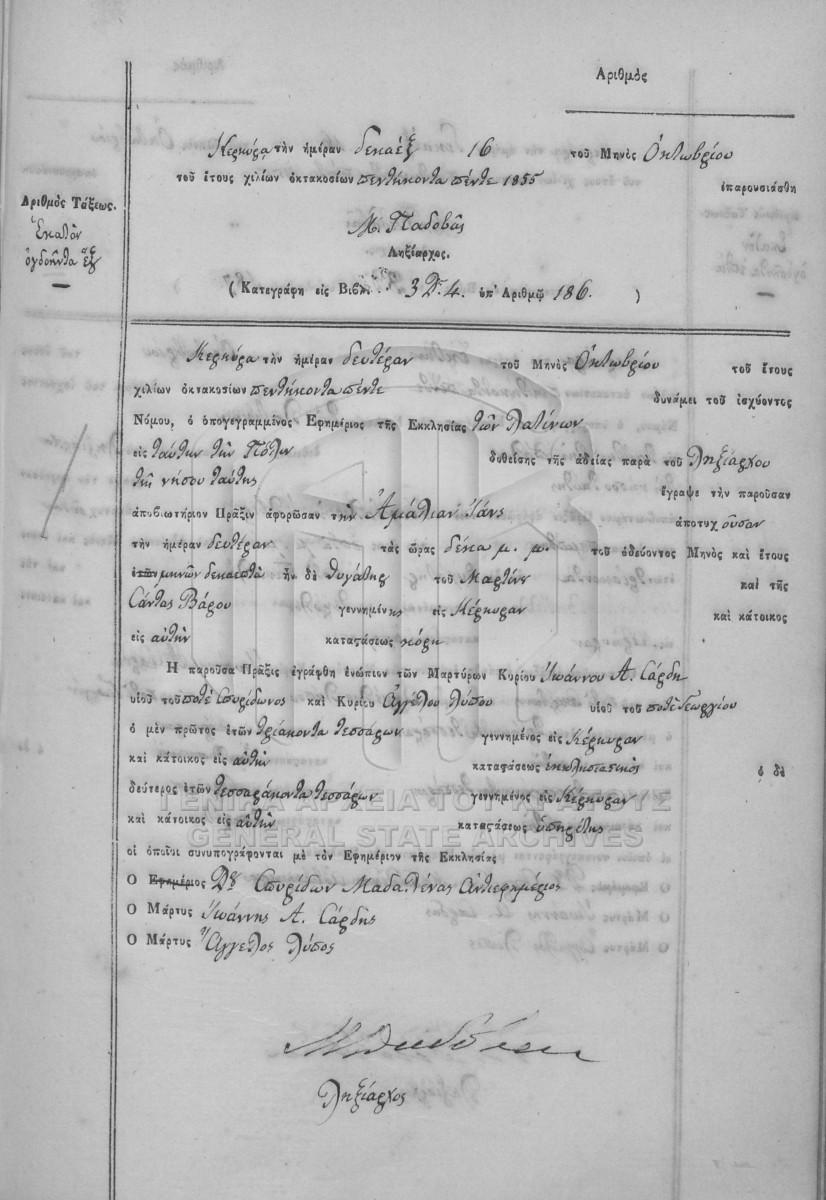 Αριθμός
Κερκύρα τὴν ἡμέραν δεκαέξ 16 τοῦ Μηνὸς Ὀκτωβρίου
τοῦ ἔτους χιλίων ὀκτακοσίων πεντήκοντα πέντε 1855 ἐπαρουσιάσθη
Ἀριθμὸς Τάξεως.
Ἑκατὸν
ὀγδοῆντα ἕξ
Μ. Παδοβᾶς
Ληξίαρχος.
( Κατεγράφη εἰς Βιβλ. 3 4. ὑπ' Ἀριθμῷ 186. )
Κερκύρα τὴν ἡμέραν δευτέραν τοῦ Μηνὸς Ὀκτωβρίου τοῦ ἔτους
χιλίων ὀκτακοσίων πεντήκοντα πέντε δυνάμει τοῦ ἰσχύοντος
Νόμου, ὁ ὑπογεγραμμένος Ἐφημέριος τῆς Ἐκκλησίας τῶν Λατίνων
εἰς ταύτην τὴν Πόλιν δοθείσης τῆς ἀδείας παρὰ τοῦ Ληξιάρχου
τῆς νήσου ταύτης ἔγραψε τὴν παροῦσαν
ἀποβιωτήριον Πρᾶξιν ἀφορῶσαν τὴν Ἀμαλίαν Ἰάνς ἀποτυχοῦσαν
τὴν ἡμέραν δευτέραν τὰς ὥρας δέκα μ. μ. τοῦ ὁδεύοντος Μηνὸς καὶ ἔτους
ἐτῶν μηνῶν δεκαεπτὰ ἦν δὲ θυγάτηρ τοῦ Μαρτίν καὶ τῆς
Σάντας Βάρου γεννημένης εἰς Κέρκυραν καὶ κάτοικος
εἰς αὐτὴν καταστάσεως κόρη
Ἡ παροῦσα Πρᾶξις ἐγράφθη ἐνώπιον τῶν Μαρτύρων Κυρίου Ἰωάννου Α. Σάρδη
υἱοῦ τοῦ ποτὲ Σπυρίδωνος καὶ Κυρίου Ἀγγέλου Λύπου υἱοῦ τοῦ ποτὲ Γεωργίου
ὁ μὲν πρῶτος ἐτῶν τριάκοντα τεσσάρων γεννημένος εἰς Κέρκυραν
καὶ κάτοικος εἰς αὐτὴν καταστάσεως ἐκκλησιαστικὸς ὁ δὲ
δεύτερος ἐτῶν τεσσαράκοντα τεσσάρων γεννημένος εἰς Κέρκυραν
καὶ κάτοικος εἰς αὐτὴν καταστάσεως ὑπηρέτης
οἱ ὁποῖοι συνυπογράφονται μὲ τὸν Ἐφημέριον τῆς Ἐκκλησίας
Ὁ Ἐφημέριος Σπυρίδων Μαδαλένας Ἀντεφημέριος
Ὁ Μάρτυς Ἰωάννης Α. Σάρδης
Ὁ Μάρτυς Ἄγγελος Λύπος
Ληξίαρχος
ΓΕΝΙΚΑ ΑΡΧΕΙΑ ΤΟΥ ΚΡΑΤΟΥΣ
GENERAL STATE ARCHIVES